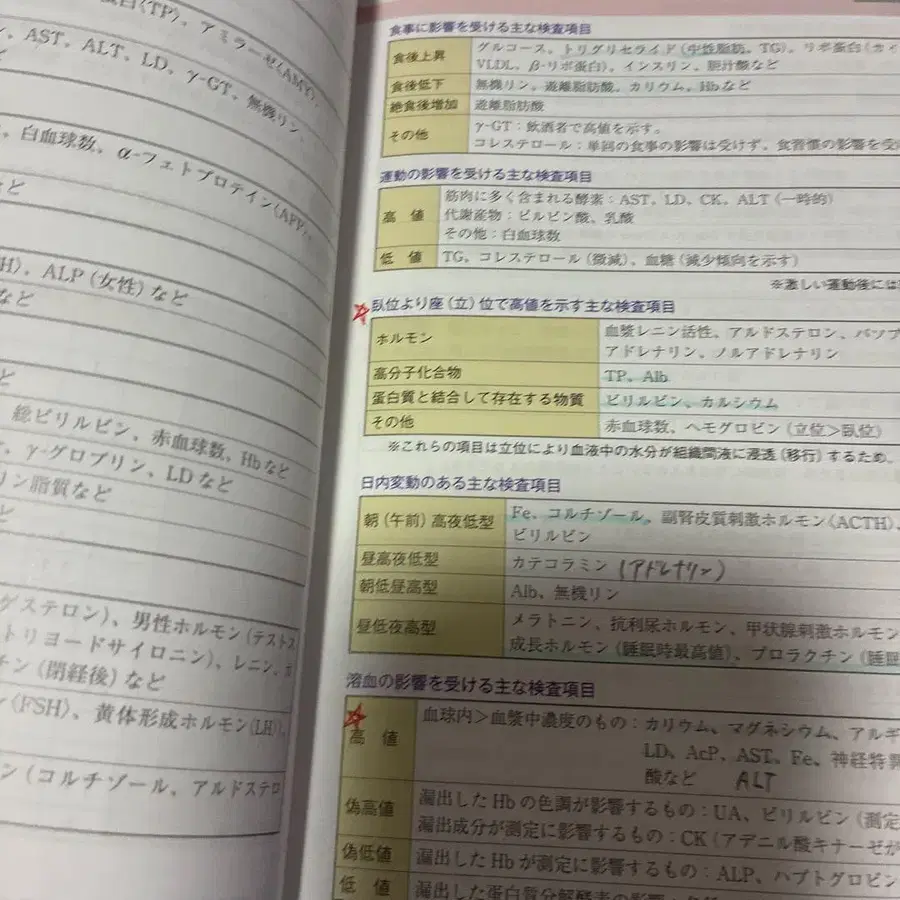 白(TP)、アミラーゼ(AMY)、
AST、ALT、LD、γ-GT、無機リン、
白血球数、α-フェトプロテイン(AFP)、
など
H)、ALP(女性)など
など
総ビリルビン、赤血球数、Hbなど
γ-グロブリン、LDなど
リン脂質など
ゲステロン)、男性ホルモン(テストス
トリヨードサイロニン)、レニン、
チン(閉経後)など
(FSH)、黄体形成ホルモン(LH)、
ン(コルチゾール、アルドステロ
食事に影響を受ける主な検査項目
食後上昇 グルコース、トリグリセライド(中性脂肪、TG)、リポ蛋白(カイ
VLDL、β-リポ蛋白)、インスリン、胆汁酸など
食後低下 無機リン、遊離脂肪酸、カリウム、Hbなど
絶食後増加 遊離脂肪酸
その他 γ-GT:飲酒者で高値を示す。
コレステロール:単回の食事の影響は受けず、食習慣の影響を受
運動の影響を受ける主な検査項目
高 値 筋肉に多く含まれる酵素:AST、LD、CK、ALT(一時的)
代謝産物:ピルビン酸、乳酸
その他:白血球数
低 値 TG、コレステロール(微減)、血糖(減少傾向を示す)
※激しい運動後には
臥位より座(立)位で高値を示す主な検査項目
ホルモン 血漿レニン活性、アルドステロン、バソプ
アドレナリン、ノルアドレナリン
高分子化合物 TP、Alb
蛋白質と結合して存在する物質 ビリルビン、カルシウム
その他 赤血球数、ヘモグロビン(立位>臥位)
※これらの項目は立位により血液中の水分が組織間液に浸透(移行)するため、
日内変動のある主な検査項目
朝(午前)高夜低型 Fe、コルチゾール、副腎皮質刺激ホルモン(ACTH)、
ビリルビン
昼高夜低型 カテコラミン (アドレナリン)
朝低昼高型 Alb、無機リン
昼低夜高型 メラトニン、抗利尿ホルモン、甲状腺刺激ホルモン
成長ホルモン(睡眠時最高値)、プロラクチン(睡眠
溶血の影響を受ける主な検査項目
高 値 血球内>血漿中濃度のもの:カリウム、マグネシウム、アルギ
LD、AcP、AST、Fe、神経特異
酸など ALT
偽高値 漏出したHbの色調が影響するもの:UA、ビリルビン(測定
漏出成分が測定に影響するもの:CK(アデニル酸キナーゼが
偽低値 漏出したHbが測定に影響するもの:ALP、ハプトグロビン
低 値 漏出した蛋白質分解酵素の影響